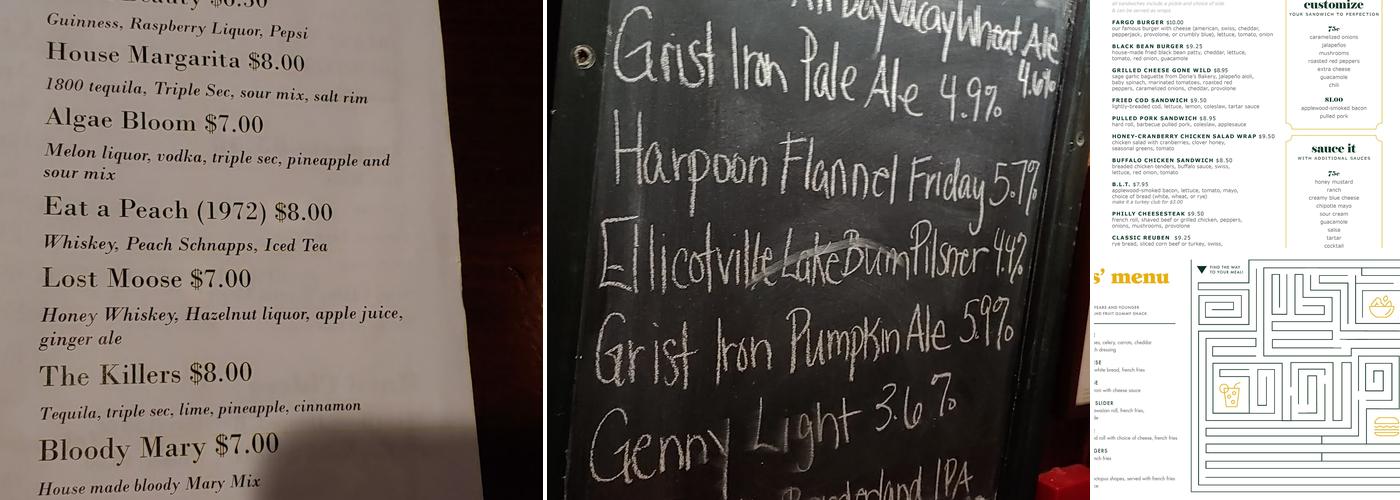 Guinness, Raspberry Liquor, Pepsi
House Margarita $8.00
1800 tequila, Triple Sec, sour mix, salt rim
Algae Bloom $7.00
Melon liquor, vodka, triple sec, pineapple and
sour mix
Eat a Peach (1972) $8.00
Whiskey, Peach Schnapps, Iced Tea
Lost Moose $7.00
Honey Whiskey, Hazelnut liquor, apple juice,
ginger ale
The Killers $8.00
Tequila, triple sec, lime, pineapple, cinnamon
Bloody Mary $7.00
House made bloody Mary Mix
Wheat Ale
4.6%
Grist Iron Pale Ale 4.9%
Harpoon Flannel Friday 5.7%
Ellicotville Lake Bum Pilsner 4.4%
Grist Iron Pumpkin Ale 5.9%
Genny Light 3.6%
IPA
all sandwiches include a pickle and choice of side.
& can be served as wraps
FARGO BURGER $10.00
our famous burger with cheese (american, swiss, cheddar,
pepperjack, provolone, or crumbly blue), lettuce, tomato, onion
BLACK BEAN BURGER $9.25
house-made fried black bean patty, cheddar, lettuce,
tomato, red onion, guacamole
GRILLED CHEESE GONE WILD $8.95
sage garlic baguette from Dorie's Bakery, jalapeño aioli,
baby spinach, marinated tomatoes, roasted red
peppers, caramelized onions, cheddar, provolone
FRIED COD SANDWICH $9.50
lightly-breaded cod, lettuce, lemon, coleslaw, tartar sauce
PULLED PORK SANDWICH $8.95
hard roll, barbecue pulled pork, coleslaw, applesauce
HONEY-CRANBERRY CHICKEN SALAD WRAP $9.50
chicken salad with cranberries, clover honey,
seasonal greens, tomato
BUFFALO CHICKEN SANDWICH $8.50
breaded chicken tenders, buffalo sauce, swiss,
lettuce, red onion, tomato
B.L.T. $7.95
applewood-smoked bacon, lettuce, tomato, mayo,
choice of bread (white, wheat, or rye)
make it a turkey club for $3.00
PHILLY CHEESESTEAK $9.50
french roll, shaved beef or grilled chicken, peppers,
onions, mushrooms, provolone
CLASSIC REUBEN $9.25
rye bread, sliced corn beef or turkey, swiss,
customize
YOUR SANDWICH TO PERFECTION
75¢
caramelized onions
jalapeños
mushrooms
roasted red peppers
extra cheese
guacamole
chili
$1.00
applewood-smoked bacon
pulled pork
sauce it
WITH ADDITIONAL SAUCES
75¢
honey mustard
ranch
creamy blue cheese
chipotle mayo
sour cream
guacamole
salsa
tartar
cocktail
s' menu
FIND THE WAY
TO YOUR MEAL!
YEARS AND YOUNGER
FRUIT GUMMY SNACK
celery, carrots, cheddar
dressing
white bread, french fries
with cheese sauce
SLIDER
roll, french fries
roll with choice of cheese, french fries
french fries
shapes, served with french fries